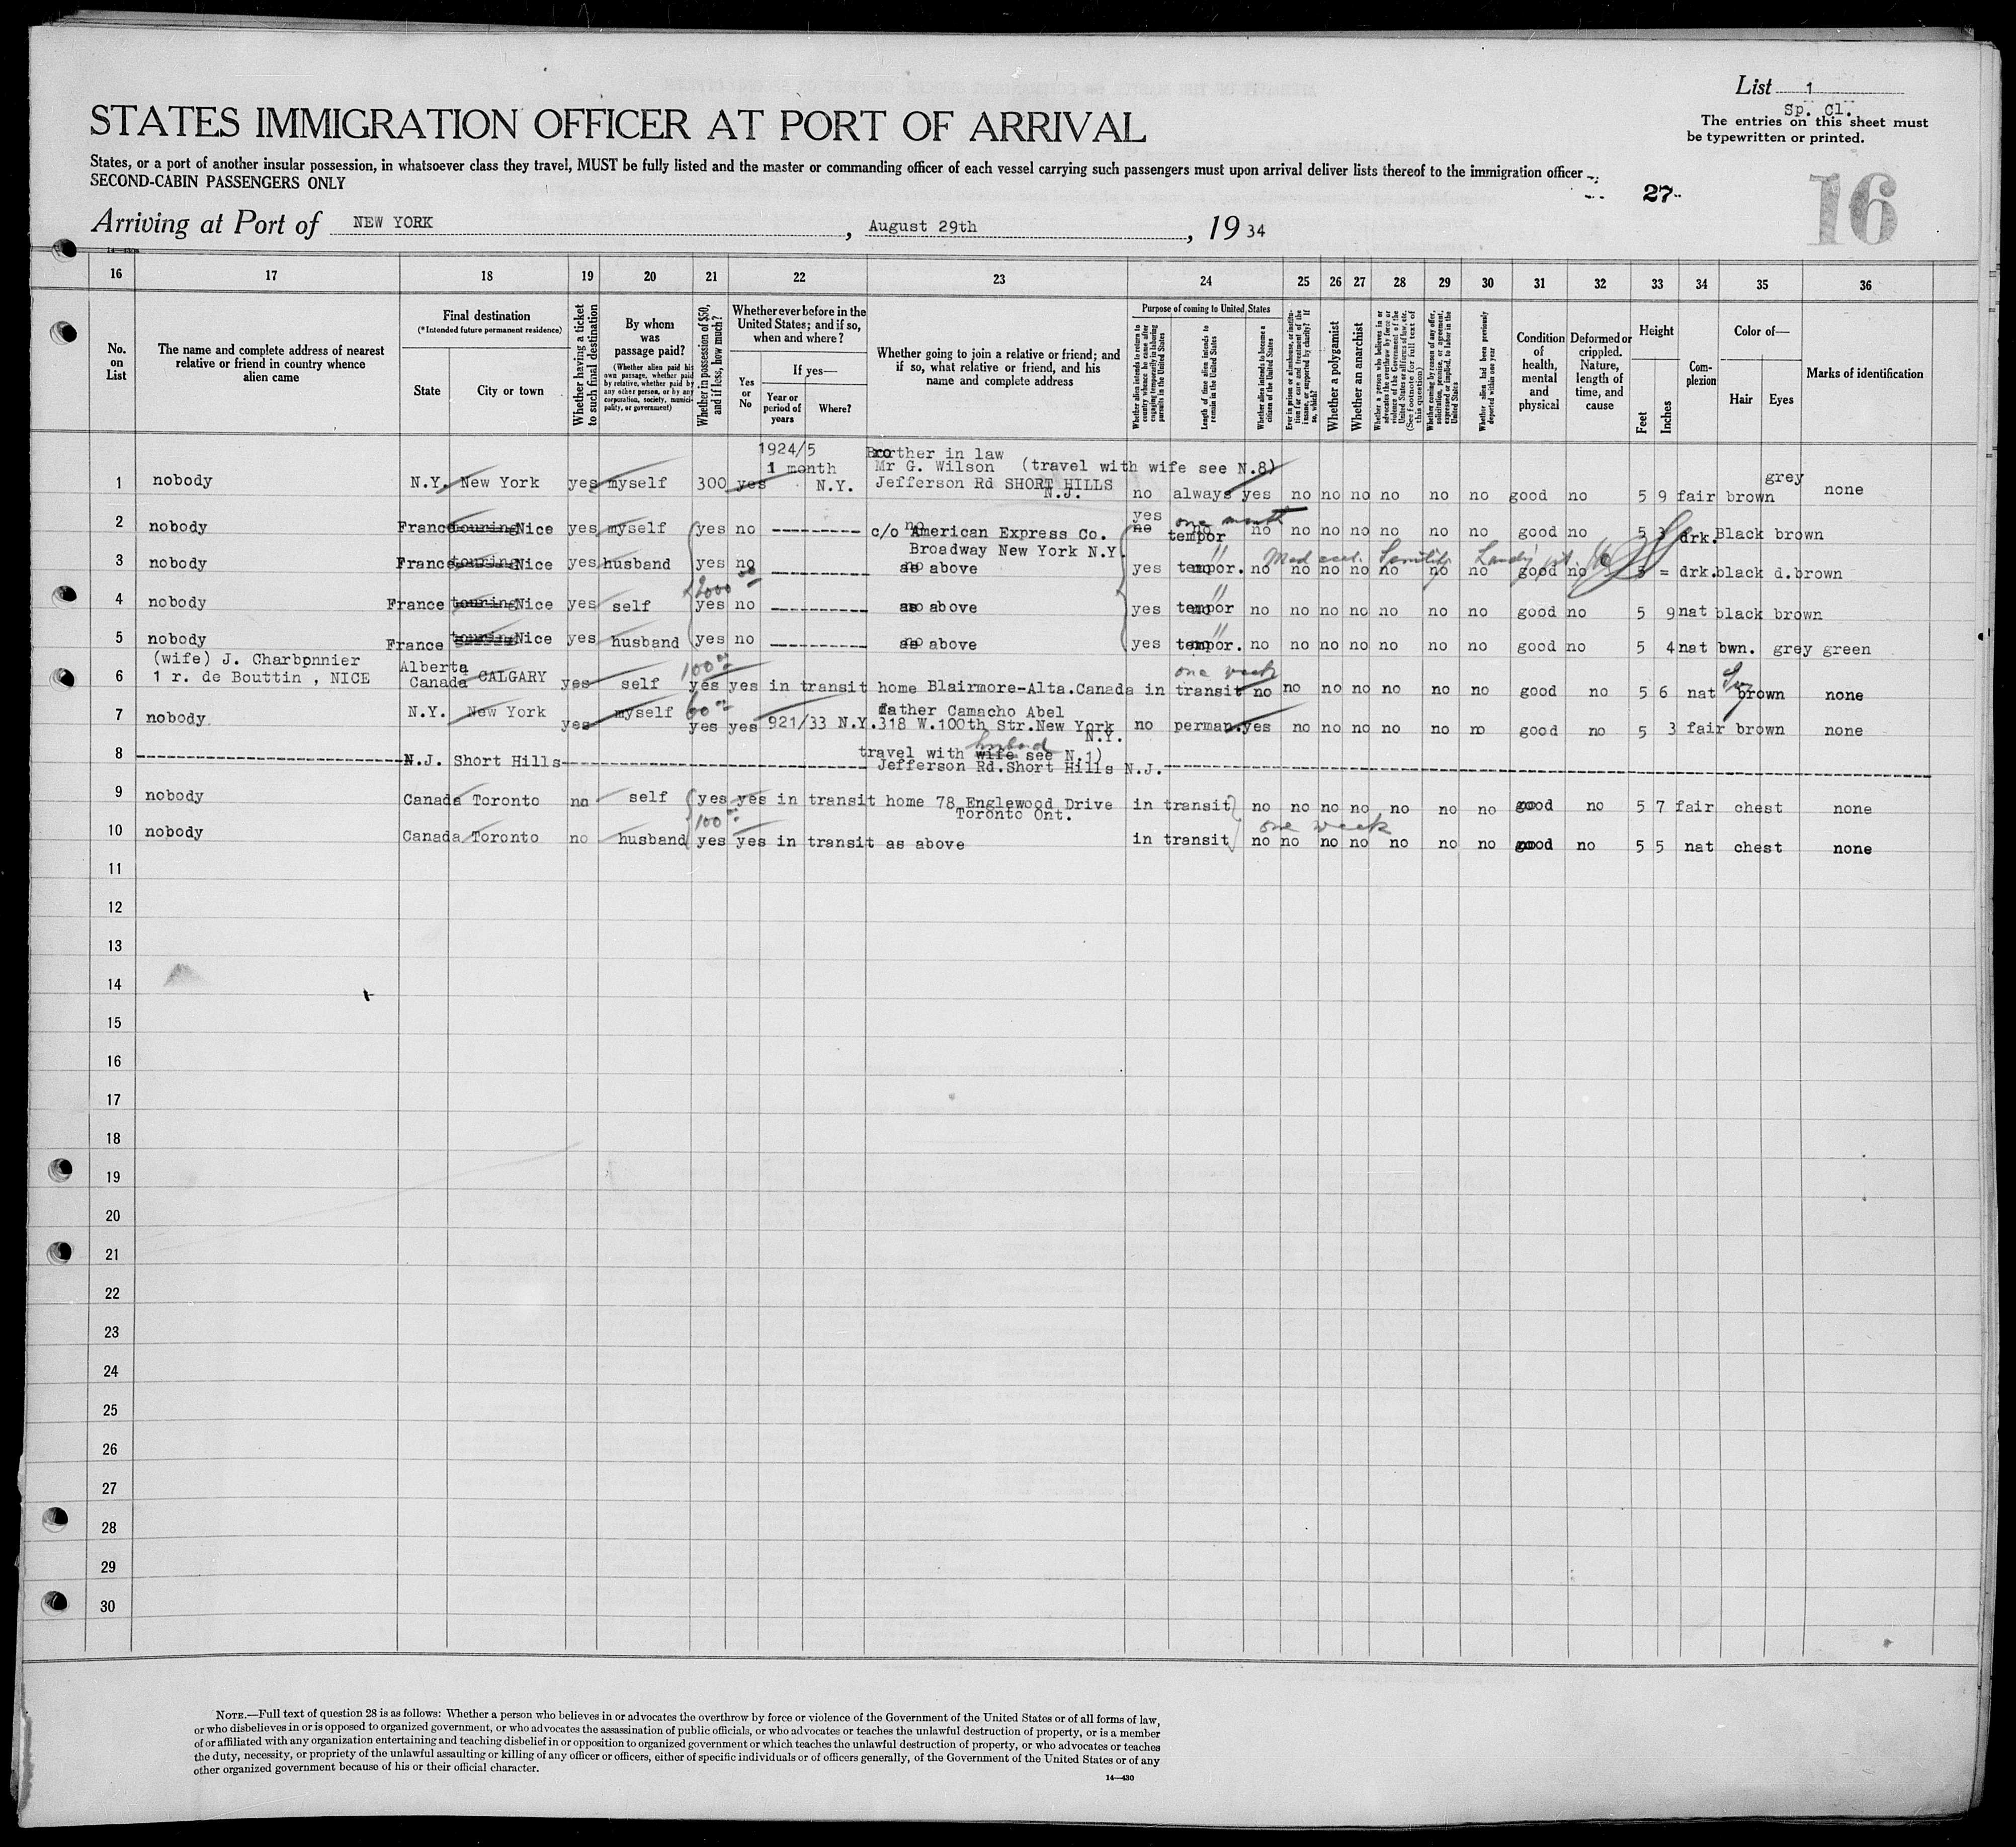 List 1
Sp. Cl.
The entries on this sheet must
be typewritten or printed.
STATES IMMIGRATION OFFICER AT PORT OF ARRIVAL
States, or a port of another insular possession, in whatsoever class they travel, MUST be fully listed and the master or commanding officer of each vessel carrying such passengers must upon arrival deliver lists thereof to the immigration officer
SECOND-CABIN PASSENGERS ONLY
27
16
Arriving at Port of NEW YORK, August 29th, 19 34
16 17 18 19 20 21 22 23 24 25 26 27 28 29 30 31 32 33 34 35 36
No. on List
The name and complete address of nearest relative or friend in country whence alien came
Final destination
(*Intended future permanent residence)
State
City or town
Whether having a ticket to such final destination
By whom was passage paid?
(Whether alien paid his own passage, whether paid by relative, whether paid by any other person, or by any corporation, society, municipality, or government)
Whether in possession of $50, and if less, how much?
Whether ever before in the United States; and if so, when and where?
Yes or No
If yes—
Year or period of years
Where?
Whether going to join a relative or friend; and if so, what relative or friend, and his name and complete address
Purpose of coming to United States
Whether alien intends to return to country whence he came after engaging temporarily in laboring pursuits in the United States
Length of time alien intends to remain in the United States
Whether alien intends to become a citizen of the United States
Ever in prison or almshouse, or institution for care and treatment of the insane, or supported by charity? If so, which?
Whether a polygamist
Whether an anarchist
Whether a person who believes in or advocates the overthrow by force or violence of the Government of the United States or all forms of law, etc. (See footnote for full text of this question)
Whether coming by reason of any offer, solicitation, promise, or agreement, expressed or implied, to labor in the United States
Whether alien had been previously deported within one year
Condition of health, mental and physical
Deformed or crippled. Nature, length of time, and cause
Height
Feet
Inches
Complexion
Color of—
Hair
Eyes
Marks of identification
1924/5 Brother in law
1 month Mr G. Wilson (travel with wife see N.8)
1 nobody N.Y. New York yes myself 300 yes N.Y. Jefferson Rd SHORT HILLS N.J. no always yes no no no no no no good no 5 9 fair brown grey none
yes one month
2 nobody France touring Nice yes myself yes no ---------- c/o American Express Co. no tempor no no no no no no no good no 5 3 drk. Black brown
Broadway New York N.Y.
3 nobody France touring Nice yes husband yes no ---------- as above yes tempor. no no no no no no no good no 5 = drk. black d.brown
2000 00
4 nobody France touring Nice yes self yes no ---------- as above yes tempor " no no no no no no no good no 5 9 nat black brown
5 nobody France touring Nice yes husband yes no ---------- as above yes tempor. " no no no no no no no good no 5 4 nat bwn. grey green
(wife) J. Charbonnier Alberta 100 one week
6 1 r. de Bouttin , NICE Canada CALGARY yes self yes yes in transit home Blairmore-Alta.Canada in transit no no no no no no no good no 5 6 nat brown none
father Camacho Abel
7 nobody N.Y. New York yes myself 60 yes yes 921/33 N.Y. 318 W.100th Str.New York N.Y. no perman. yes no no no no no no good no 5 3 fair brown none
travel with wife husband see N.1)
8 ---------- N.J. Short Hills ---------- Jefferson Rd.Short Hills N.J. ----------
9 nobody Canada Toronto no self yes yes in transit home 78 Englewood Drive in transit no no no no no no no good no 5 7 fair chest none
100 Toronto Ont. one week
10 nobody Canada Toronto no husband yes yes in transit as above in transit no no no no no no no good no 5 5 nat chest none
11
12
13
14
15
16
17
18
19
20
21
22
23
24
25
26
27
28
29
30
NOTE.—Full text of question 28 is as follows: Whether a person who believes in or advocates the overthrow by force or violence of the Government of the United States or of all forms of law,
or who disbelieves in or is opposed to organized government, or who advocates the assassination of public officials, or who advocates or teaches the unlawful destruction of property, or is a member
of or affiliated with any organization entertaining and teaching disbelief in or opposition to organized government or which teaches the unlawful destruction of property, or who advocates or teaches
the duty, necessity, or propriety of the unlawful assaulting or killing of any officer or officers, either of specific individuals or of officers generally, of the Government of the United States or of any
other organized government because of his or their official character.
14—430